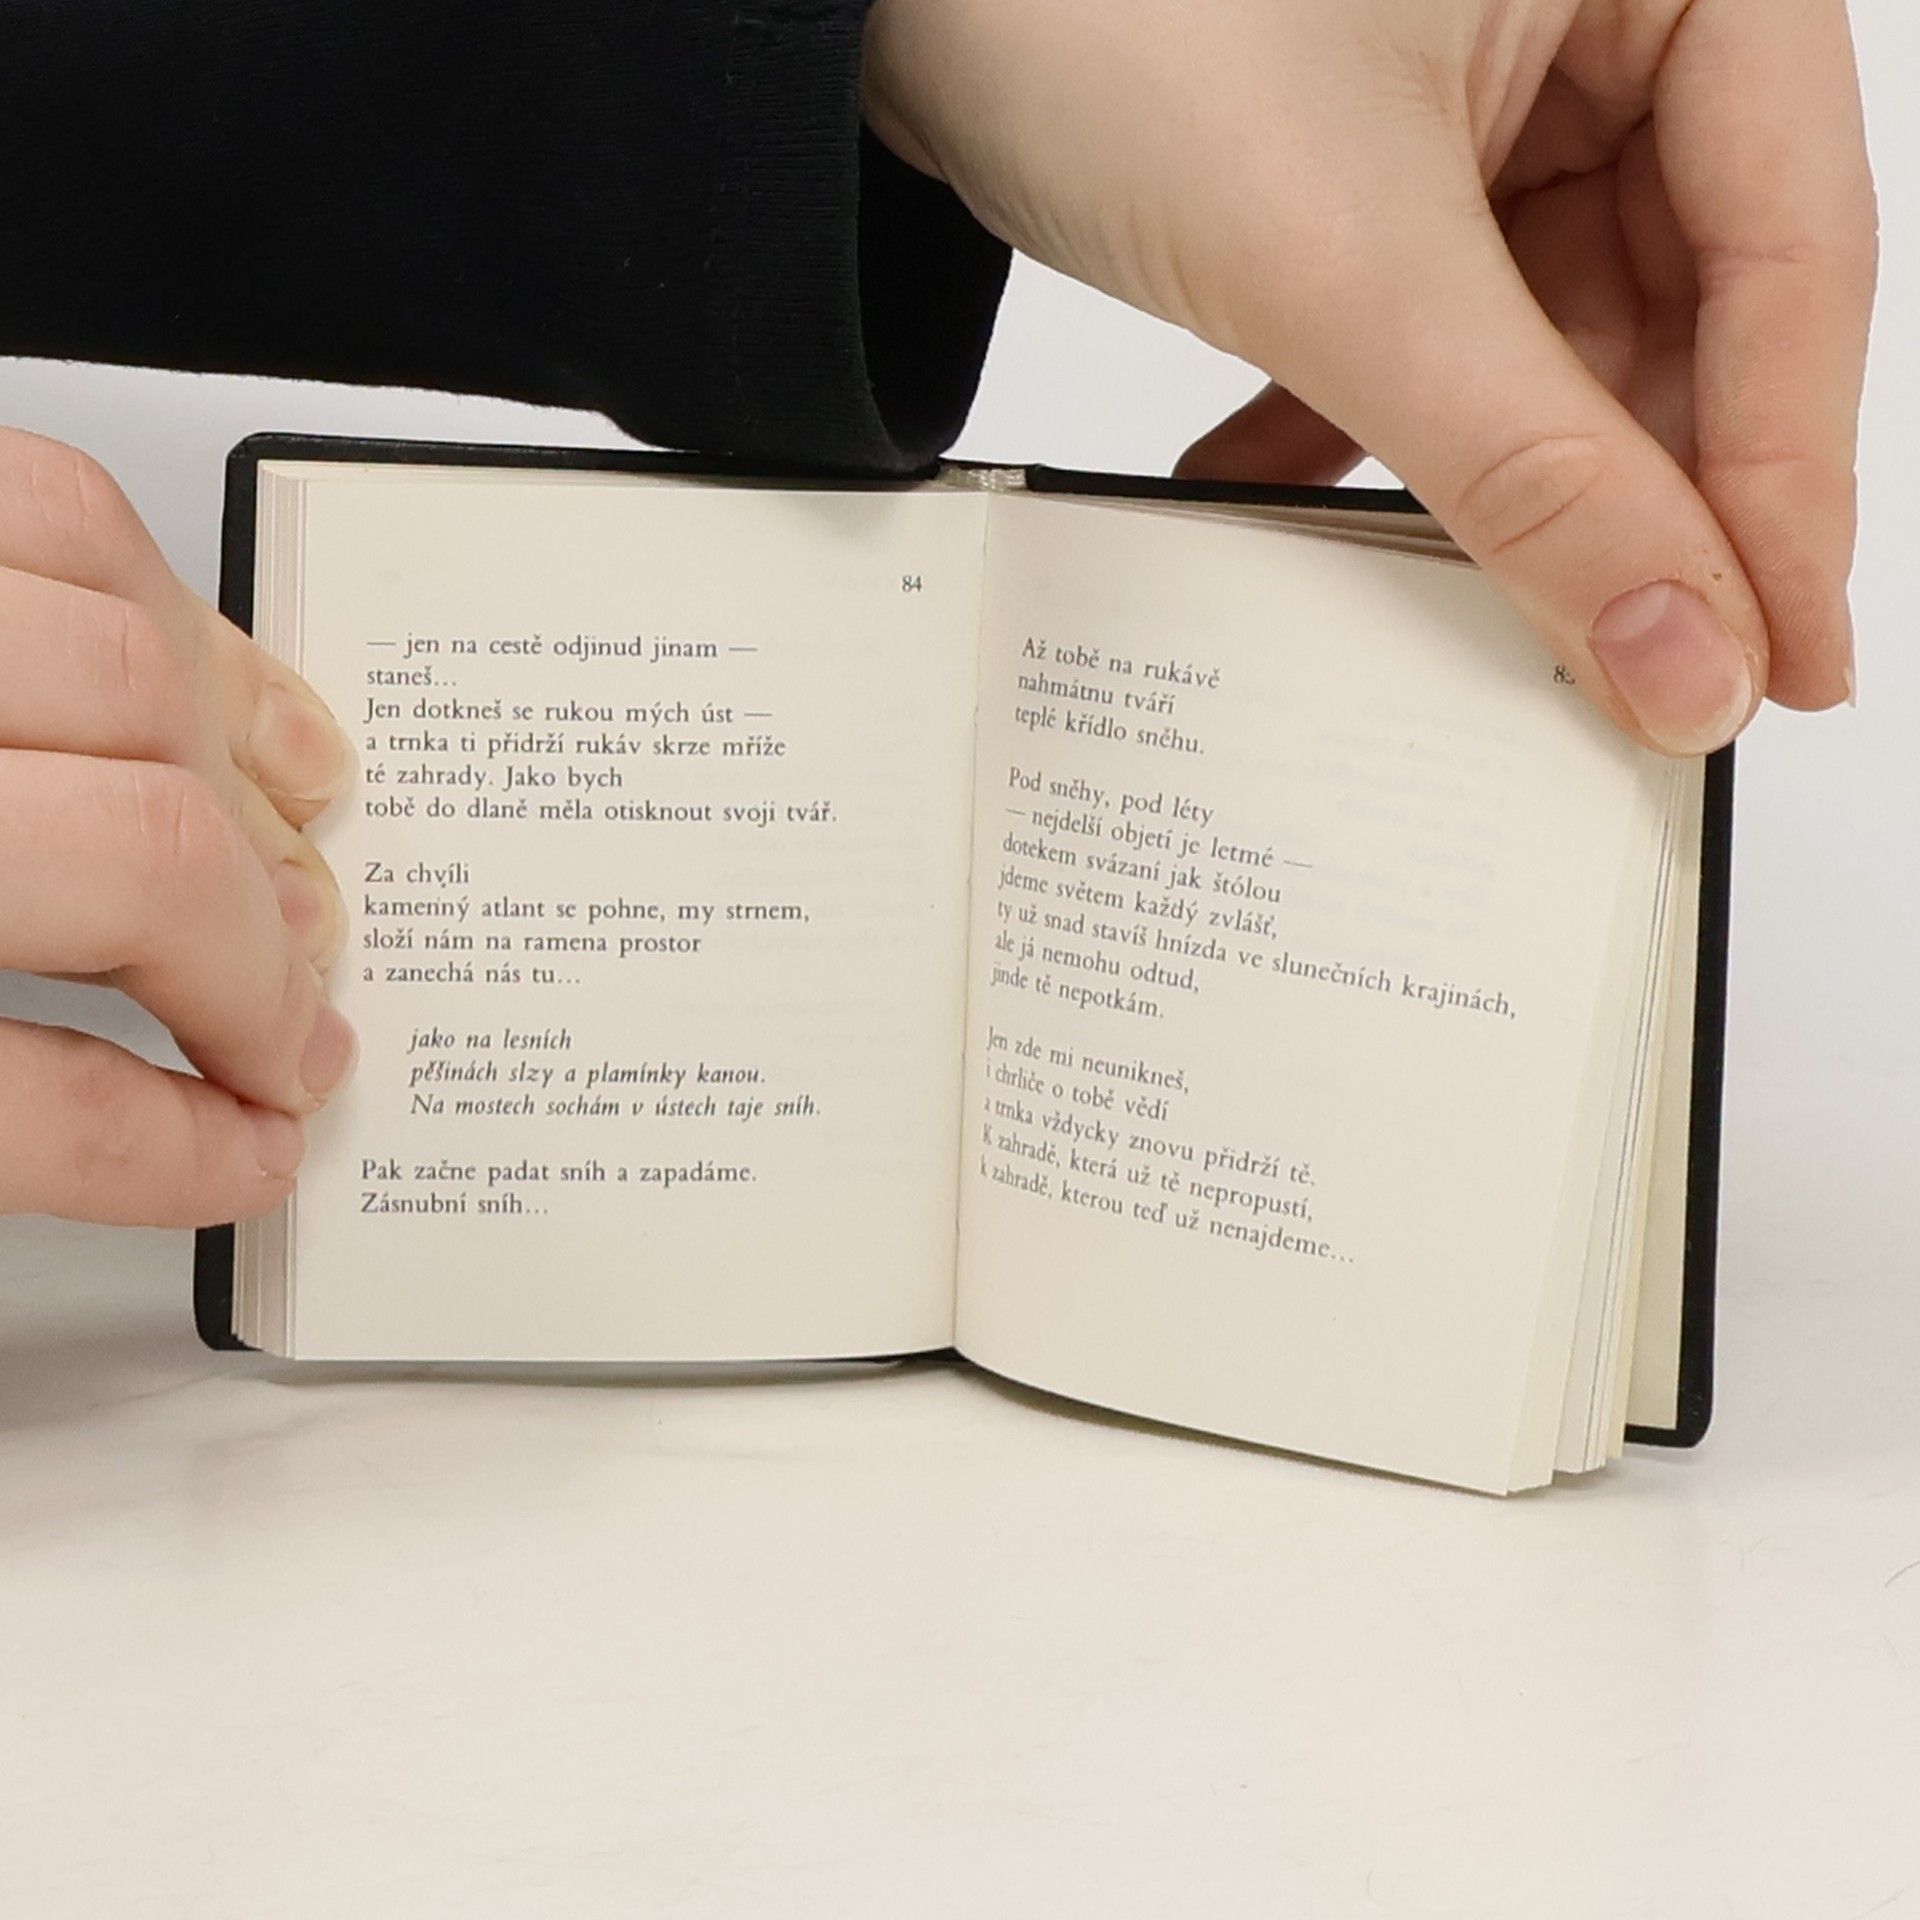 84
— jen na cestě odjinud jinam —
staneš...
Jen dotkneš se rukou mých úst —
a trnka ti přidrží rukáv skrze mříže
té zahrady. Jako bych
tobě do dlaně měla otisknout svoji tvář.
Za chvíli
kamenný atlant se pohne, my strnem,
složí nám na ramena prostor
a zanechá nás tu...
jako na lesních
pěšinách slzy a plamínky kanou.
Na mostech sochám v ústech taje sníh.
Pak začne padat sníh a zapadáme.
Zásnubní sníh...
Až tobě na rukávě
nahmátnu tváří
teplé křídlo sněhu.
Pod sněhy, pod léty
— nejdelší objetí je letmé —
dotekem svázaní jak štólou
jdeme světem každý zvlášť,
ty už snad stavíš hnízda ve slunečních krajinách,
ale já nemohu odtud,
jinde tě nepotkám.
Jen zde mi neunikneš,
i chrliče o tobě vědí
a trnka vždycky znovu přidrží tě.
K zahradě, která už tě nepropustí,
k zahradě, kterou teď už nenajdeme...